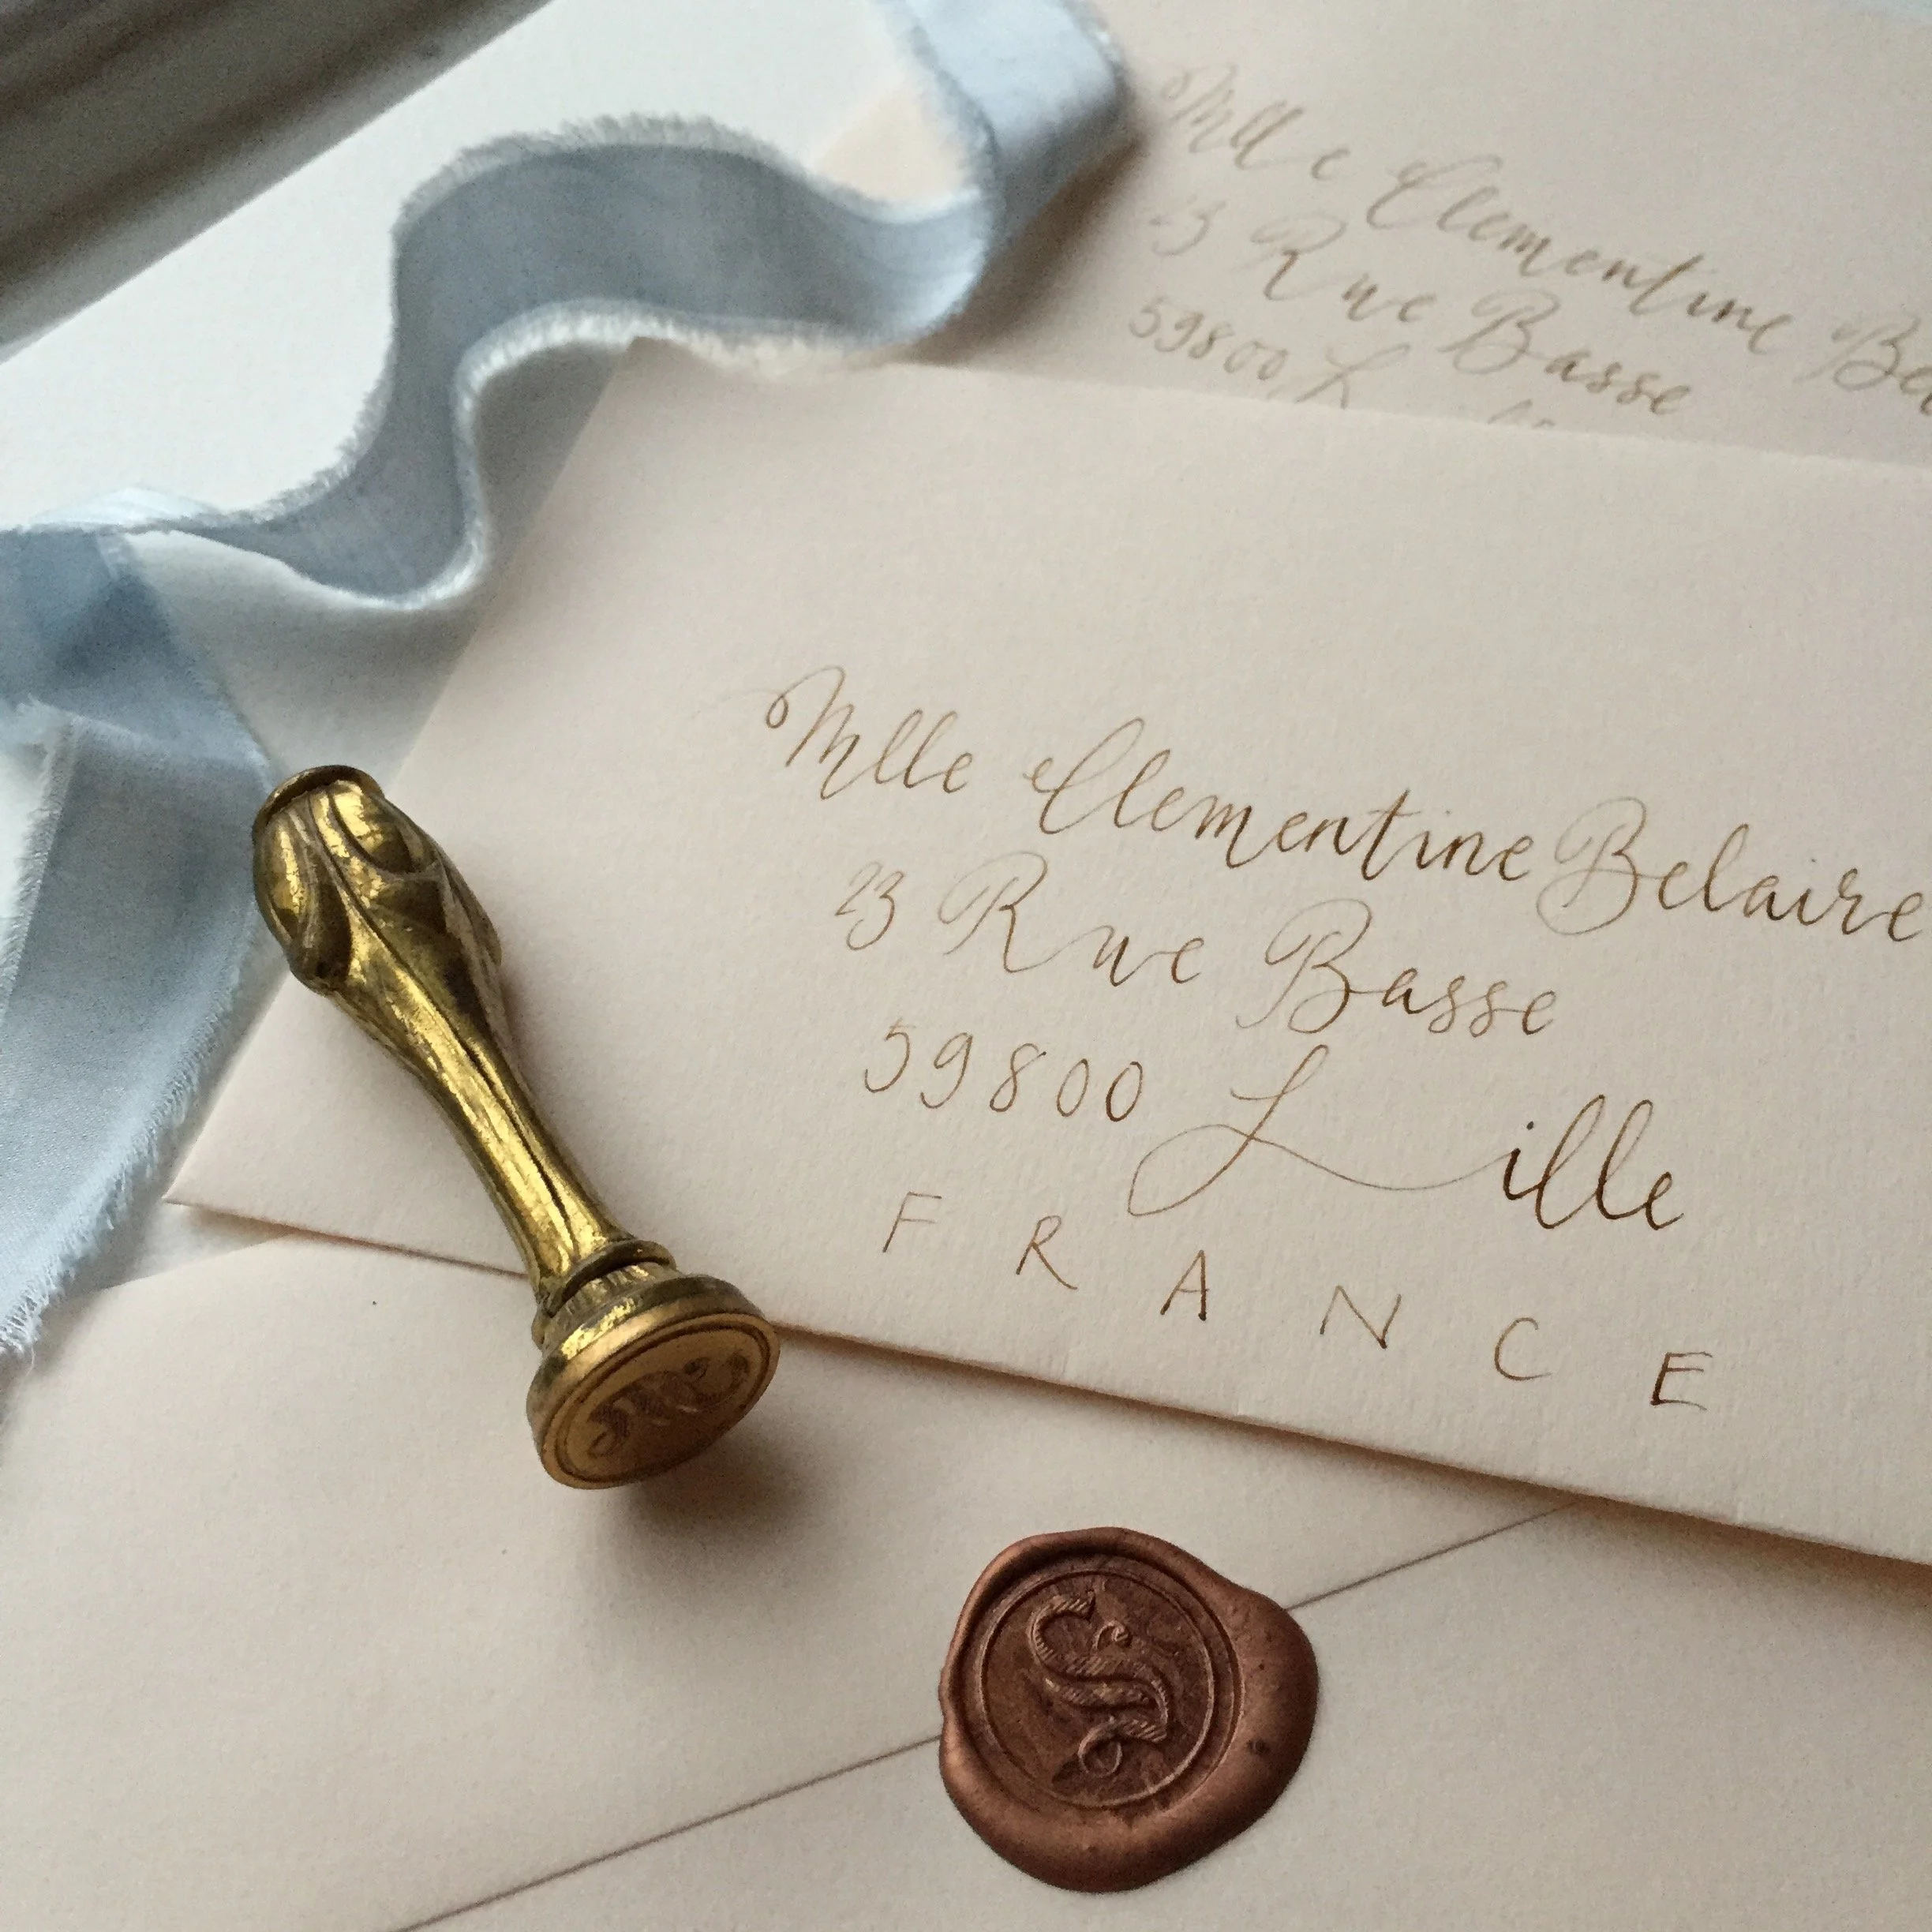 Mlle Clementine Be
23 Rue Basse
59800 L
Mlle Clementine Belaire
23 Rue Basse
59800 Lille
FRANCE